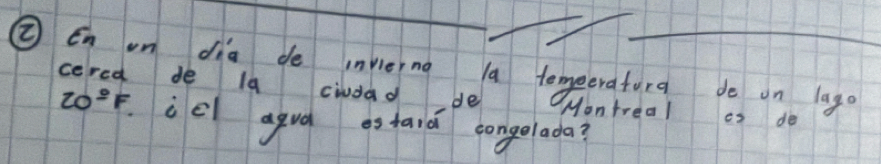 ② En un día de invierno la temperatura de un lago
cerca de la ciudad de Montreal es de
20°F. ¿El agua estará congelada?